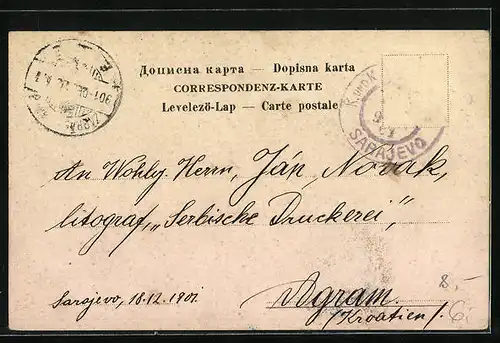 Дописна карта — Dopisna karta
CORRESPONDENZ-KARTE
Levelező-Lap — Carte postale
SARAJEVO
An Wohlg. Herrn, Ján Novak,
litograf, „Serbische Druckerei",
Agram.
/Kroatien/.
Sarajevo, 18.12.1901
8.-